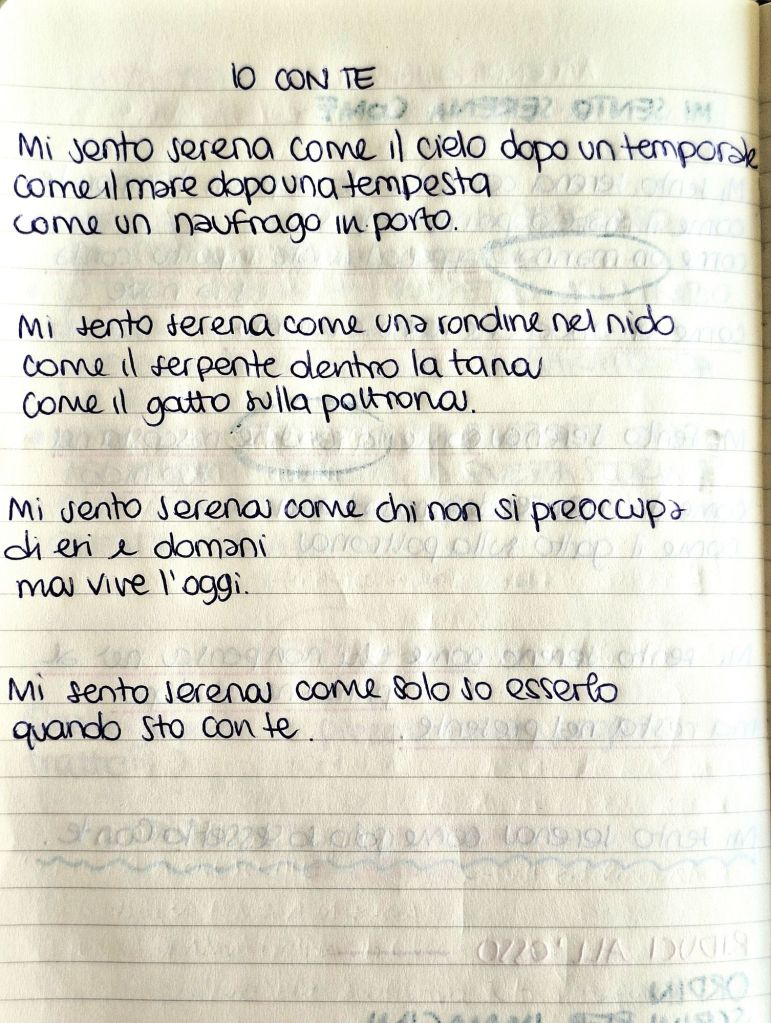 IO CON TE
Mi sento serena come il cielo dopo un temporale
come il mare dopo una tempesta
come un naufrago in porto.
Mi sento serena come una rondine nel nido
come il serpente dentro la tana
come il gatto sulla poltrona.
Mi sento serena come chi non si preoccupa
di eri e domani
ma vive l'oggi.
Mi sento serena come solo so esserlo
quando sto con te.